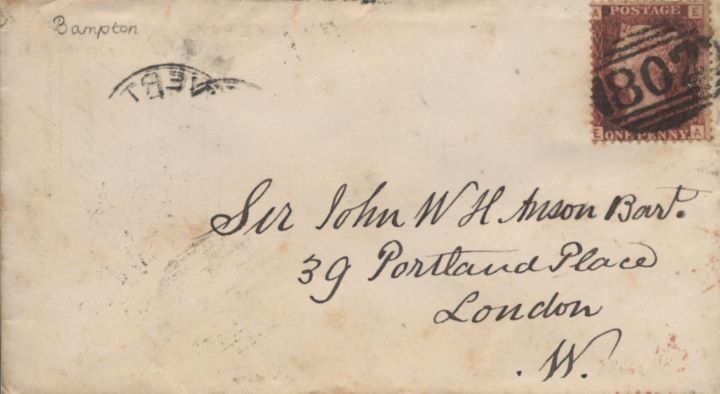 Bampton
A E
POSTAGE
802
E ONE PENNY A
Sir John W H Anson Bart.
39 Portland Place
London
.W.